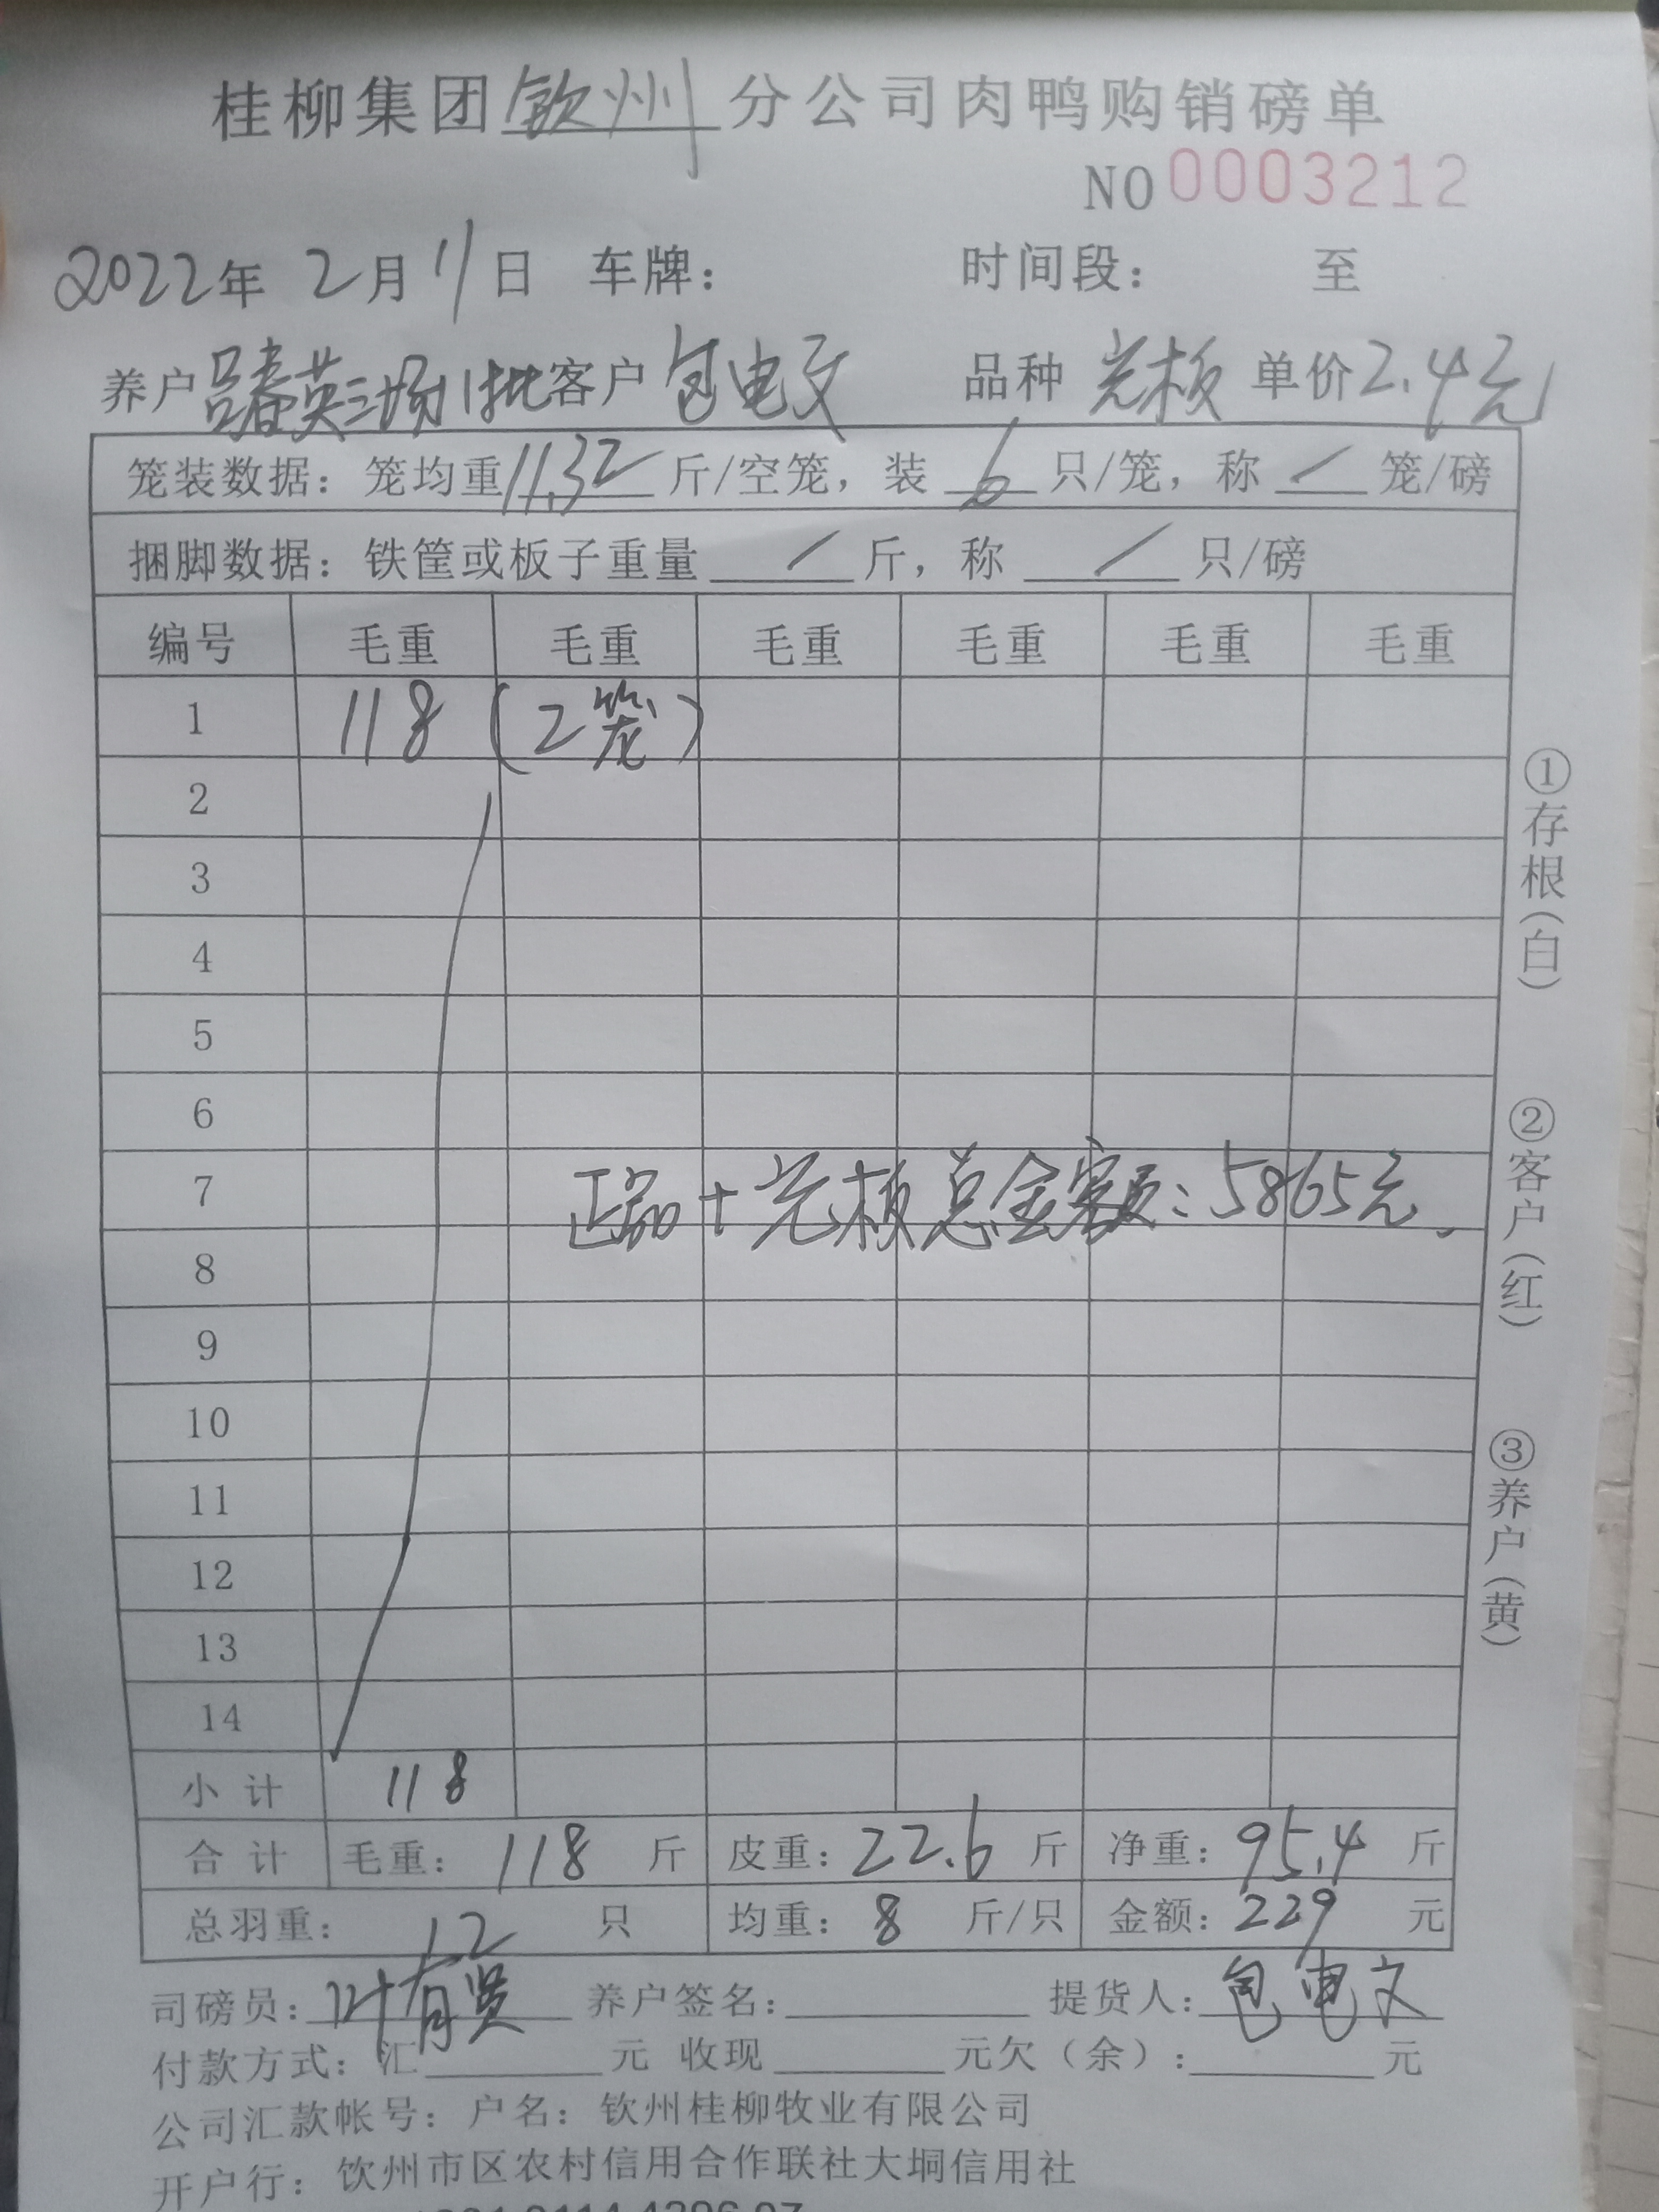 桂柳集团钦州分公司肉鸭购销磅单
NO 0003212
2022年 2月 11日 车牌： 时间段： 至
养户 吕春英三场1批 客户 包电文 品种 光板 单价 2.4元
笼装数据：笼均重 11.32 斤/空笼，装 6 只/笼，称 / 笼/磅
捆脚数据：铁筐或板子重量 / 斤，称 / 只/磅
编号 毛重 毛重 毛重 毛重 毛重 毛重
1 118 (2笼)
2
3
4
5
6
7 正品+光板总金额：5865元。
8
9
10
11
12
13
14
小计 118
合计 毛重：118 斤 皮重：22.6 斤 净重：95.4 斤
总羽重：12 只 均重：8 斤/只 金额：229 元
司磅员：叶有贤 养户签名： 提货人：包电文
付款方式：汇 元 收现 元欠（余）： 元
公司汇款帐号：户名：钦州桂柳牧业有限公司
开户行：钦州市区农村信用合作联社大垌信用社
①存根(白)
②客户(红)
③养户(黄)